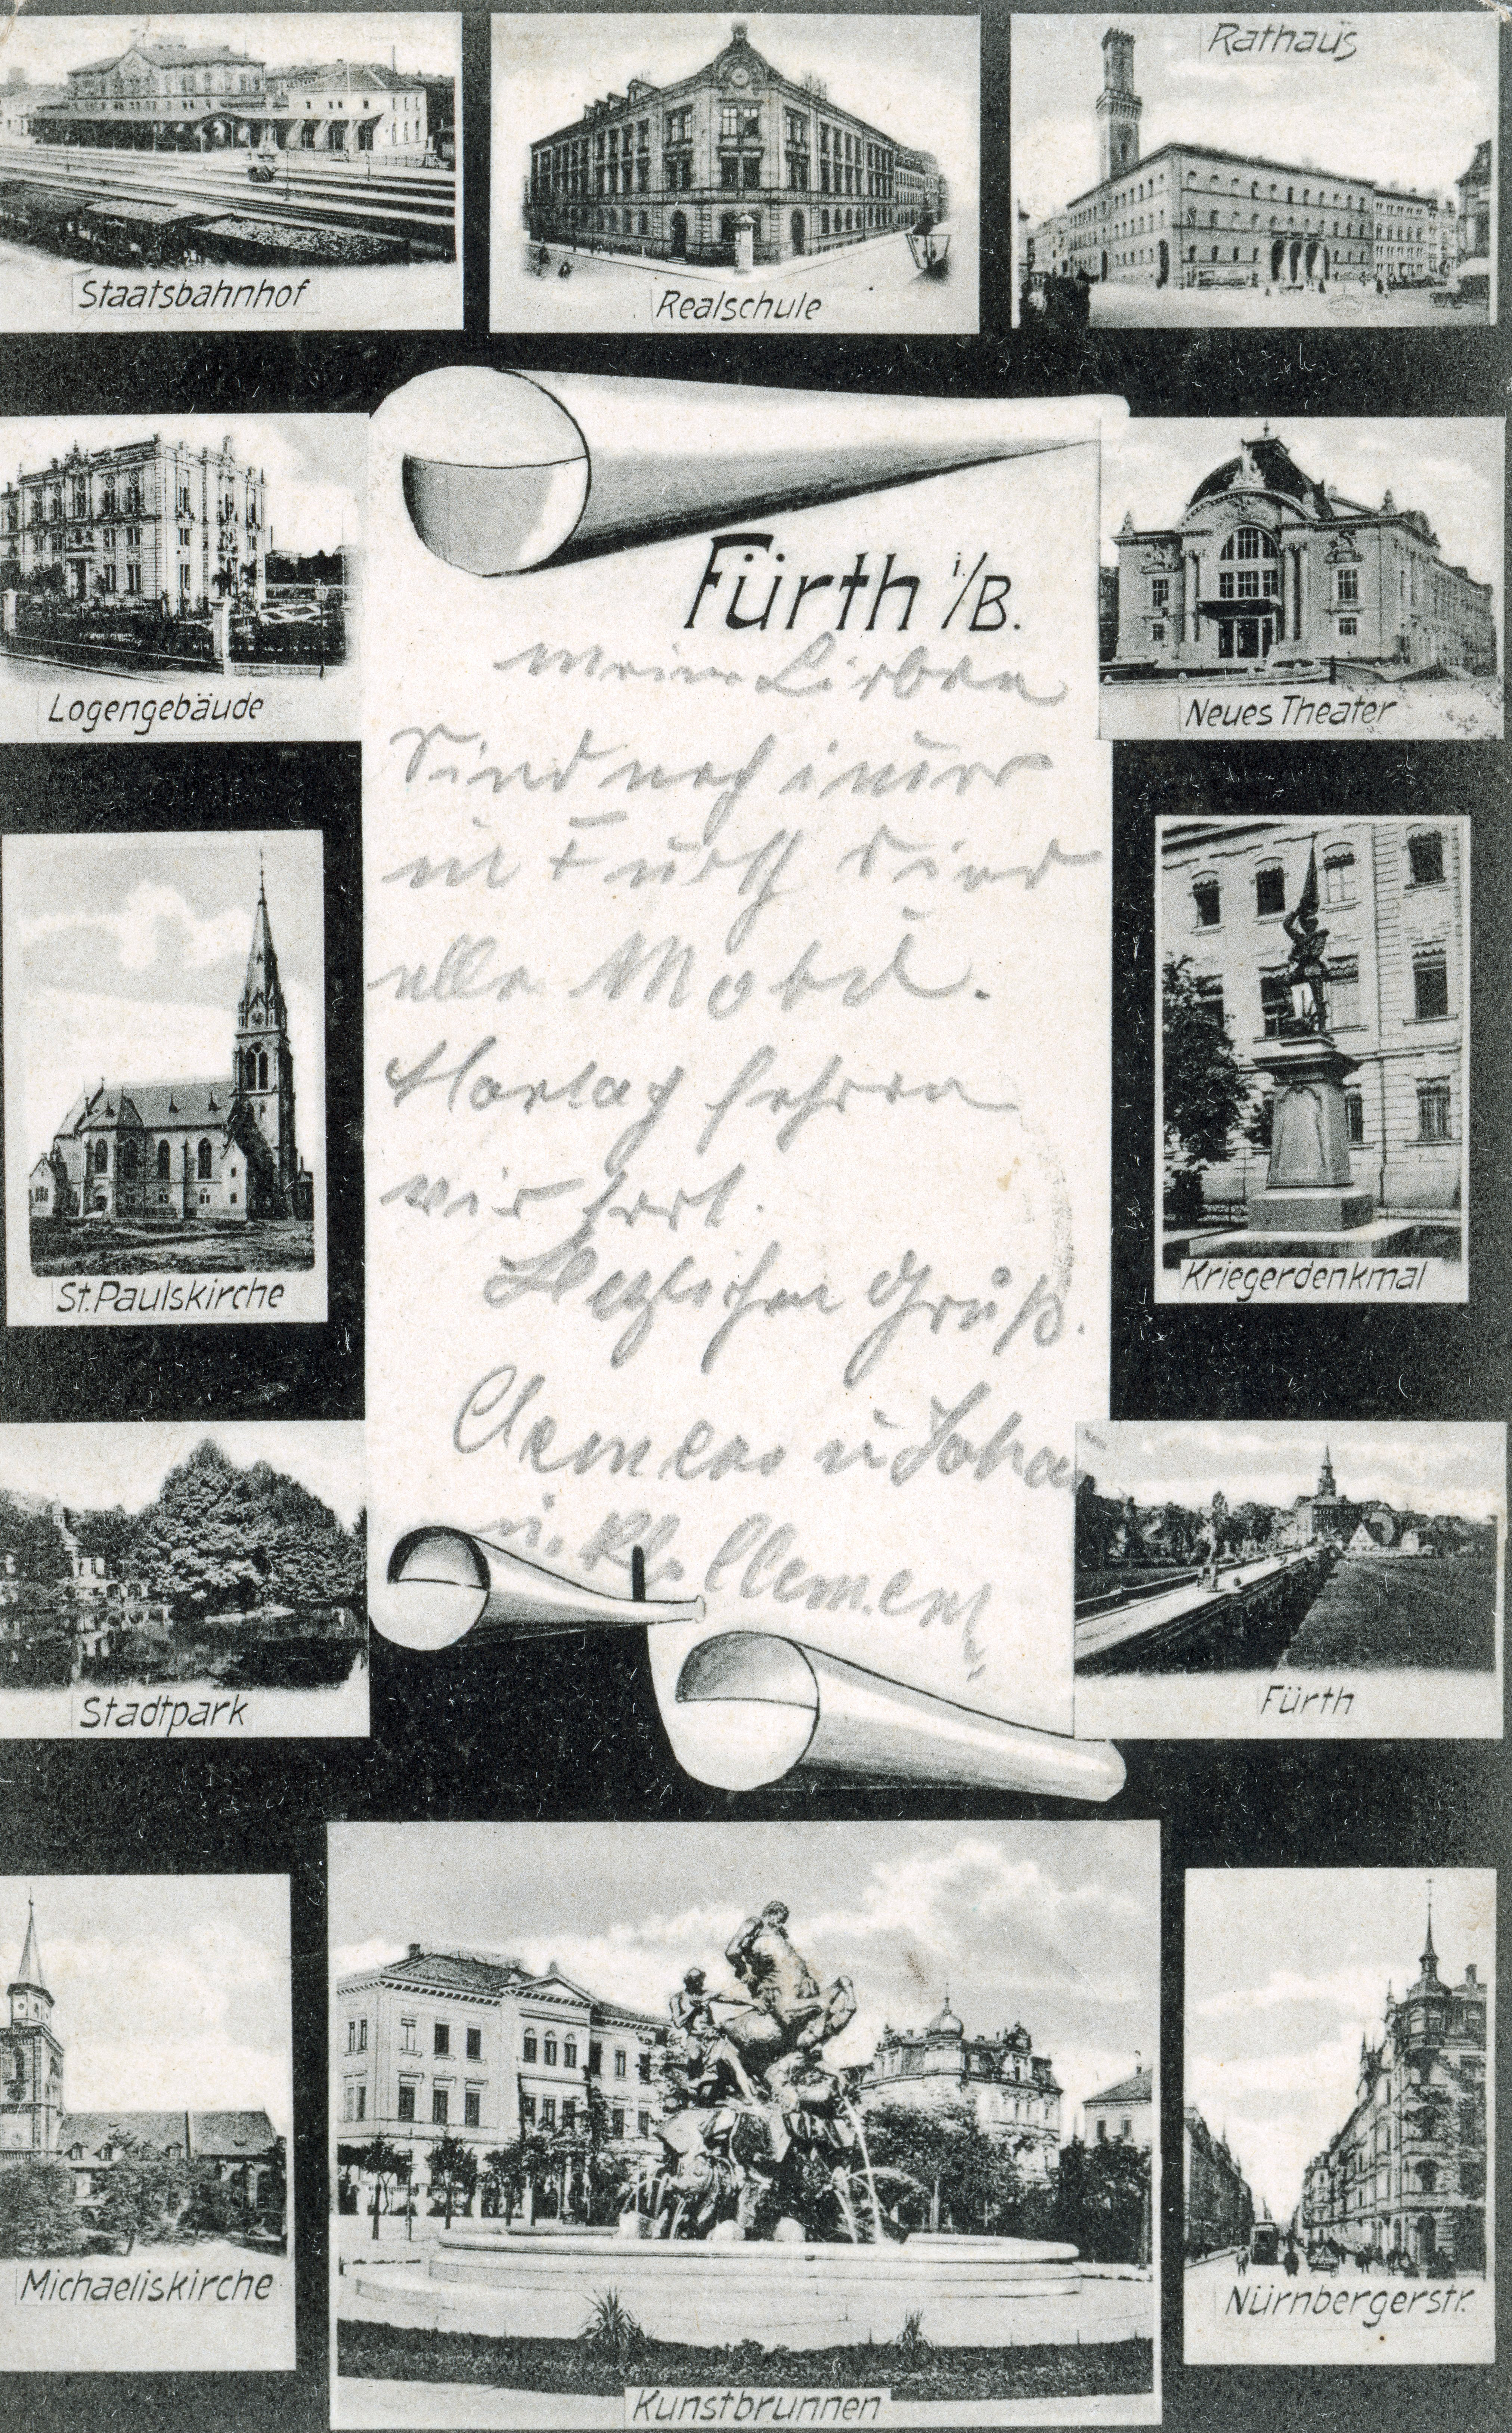 Staatsbahnhof
Realschule
Rathaus
Logengebäude
Fürth i/B.
Neues Theater
Meine Lieben
Sind noch imer
in Fürth sind
alle Mobil.
fahren
wir fort.
Herzlichen Gruß.
Clemens u Joha
u. Kl. Clemens
St. Paulskirche
Kriegerdenkmal
Stadtpark
Fürth
Michaeliskirche
Kunstbrunnen
Nürnbergerstr.